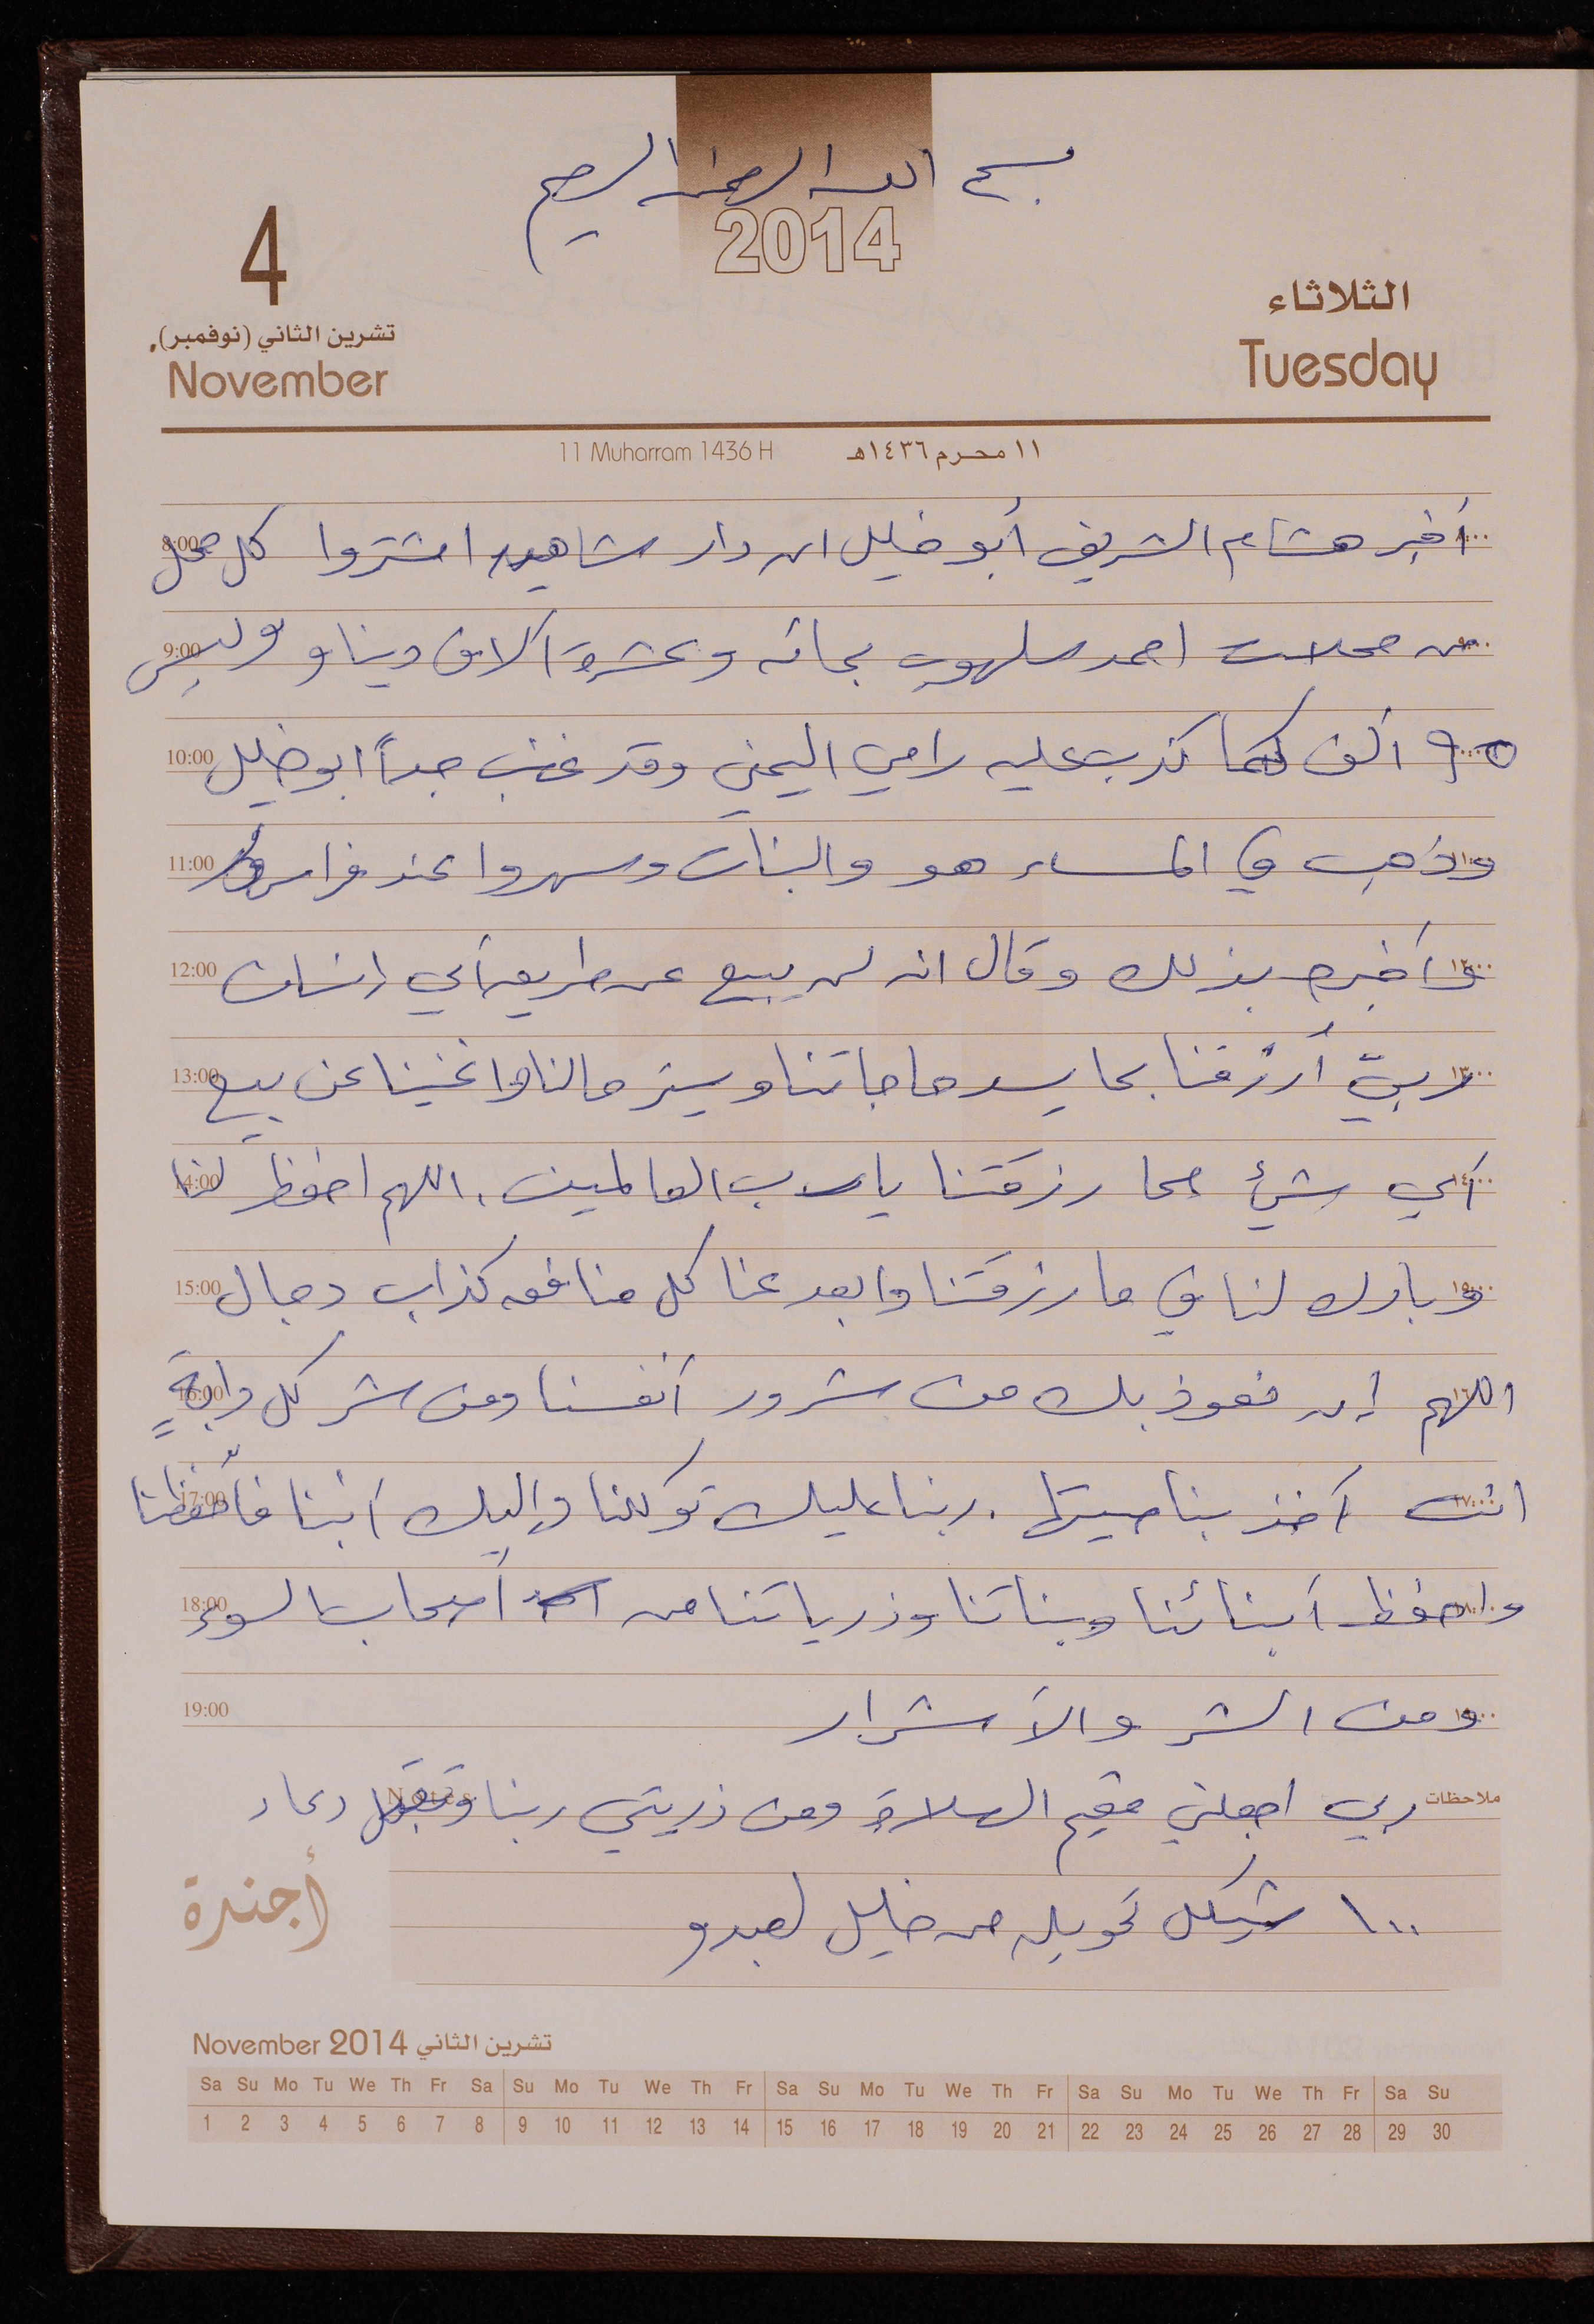 بسم الله الرحمن الرحيم
2014
4
الثلاثاء
تشرين الثاني (نوفمبر)
Tuesday
November
11 Muharram 1436 H
١١ محرم ١٤٣٦هـ
أخبر هشام الشريف أبو خليل ان دار شاهين اشتروا كل محل
8:00
من محلات احمد سلهوب بمائه وعشرة آلاف دينار وليس
9:00
٩٥ ألف كما كذب عليه رامي اليمني وقد غضب جداً ابو خليل
10:00
وذهب في المساء هو والبنات وسهروا عند فراس
11:00
وأخبره بذلك وقال انه لن يبيع عن طريق أي انسان
12:00
ربيّ أرزقنا بما يسد حاجاتنا ويستر حالنا واغنينا عن بيع
13:00
أي شئ مما رزقتنا يا رب العالمين. اللهم احفظ لنا
14:00
وبارك لنا في ما رزقتنا وابعد عنا كل منافق كذاب دجال
15:00
اللهم إن نعوذ بك من شرور أنفسنا ومن شر كل دابةٍ
16:00
انت آخذ بناصيتها. ربنا عليك توكلنا وإليك أنبنا فأحفظنا
17:00
واحفظ أبنائنا وبناتنا وذرياتنا من أصحاب السوء
18:00
ومن الشر والأشرار
19:00
ملاحظات
Notes
ربي اجعلني مقيم الصلاة ومن ذريتي ربنا وتقبل دعاء
١٠٠ شيكل تحويله من خليل لعبدو
أجندة
November 2014 تشرين الثاني
Sa Su Mo Tu We Th Fr Sa Su Mo Tu We Th Fr Sa Su Mo Tu We Th Fr Sa Su Mo Tu We Th Fr Sa Su
1 2 3 4 5 6 7 8 9 10 11 12 13 14 15 16 17 18 19 20 21 22 23 24 25 26 27 28 29 30